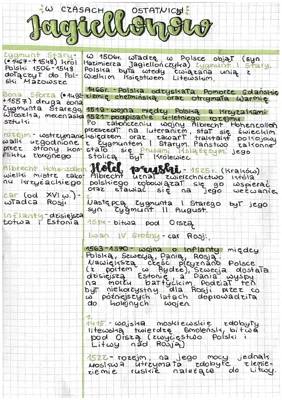 W CZASACH OSTATNICH
Jagiellonów
Zygmunt Stary
(*1467 †1548) król
Polski 1506-1548
dołączył do Pol-
ski Mazowsze
Bona Sforza
†1557) druga żona
Zygmunta Starego,
Włoszka, mecenaska
sztuki
rozejm - wstrzymanie
walki uzgodnione
przez strony kon-
fliktu zbrojnego
Albrecht Hohenzollern
ostatni mistrz zako-
nu krzyżackiego
car (od XVI w.)
władca Rosji
Inflanty - dzisiejsza
Łotwa i Estonia
W 1506r. władzę w Polsce objął (syn
Kazimierza Jagiellończyka) Zygmunt I Stary.
Polska była wtedy związana unią z
Wielkim Księstwem Litewskim.
1466r. Polska odzyskała Pomorze Gdańskie
ziemię chełmińską oraz otrzymała Warmię
1519 wojna między Polską a Krzyżakami
1521 podpisano 4-letniego rozejmu
Po zakończeniu wojny Albrecht Hohenzollern
przeszedł na luteranizm, stał się świeckim
księciem oraz zawarł traktat pokojowy
z Zygmuntem I Starym. Państwo zakonne
stało się Prusami Książęcymi jego
stolicą był Królewiec
Hołd pruski - 1525r. (Kraków)
Albrecht uznał zwierzchnictwo króla
polskiego zobowiązał się go wspierać
oraz stawiać się na jego wezwanie.
Następcą Zygmunta I Starego był jego
syn Zygmunt II August.
1514 - bitwa pod Orszą
Iwan IV Groźny - car Rosji.
1563-1570 wojna o Inflanty między
Polską, Szwecją, Danią, Rosją.
Największą część przyznano Polsce
(z portem w Rydze), Szwecja dostała
dzisiejszą Estonię a Dania wyspy
na morzu bałtyckim. Podział ten
był niekorzystny dla Rosji przez co
w późniejszych latach doprowadziła
do kolejnych wojen
- wojska moskiewskie zdobyły
litewską twierdzę Smoleńsk, bitwa
pod Orszą (zwycięstwo Polski i
Litwy nad Rosją)
1522 - rozejm, na jego mocy jednak
Moskwa utrzymała zdobyte ziemie
ziemie ruskie należące do Litwy.